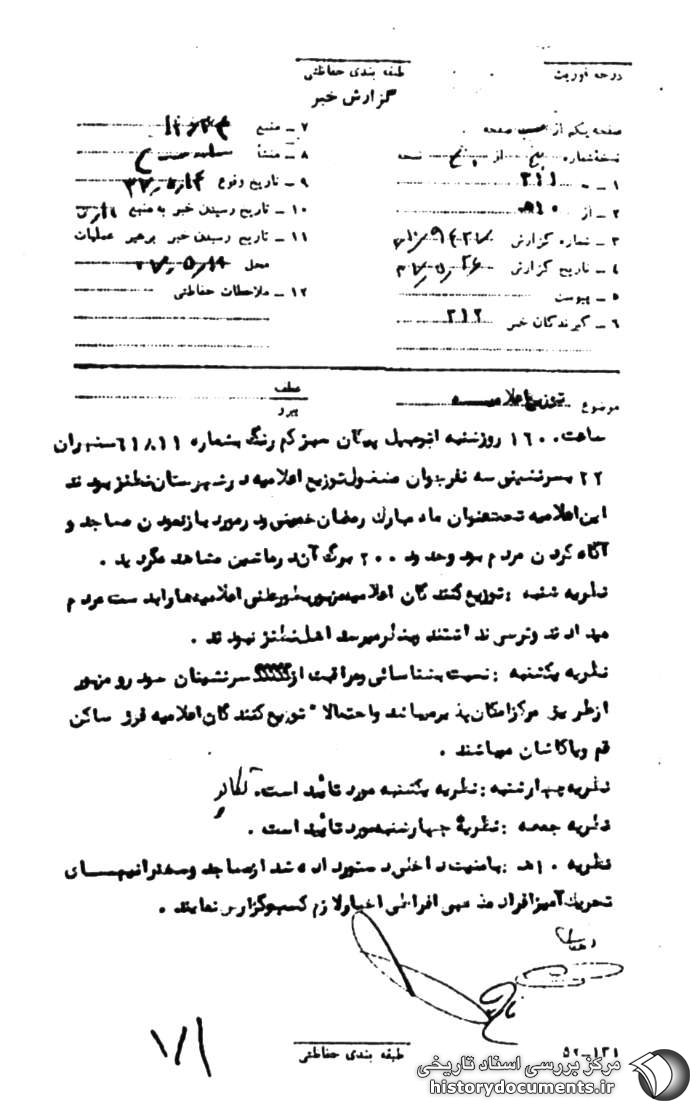 درجه فوریت
طبقه بندی حفاظتی
گزارش خبر
صفحه یکم از صفحه
نسخه شماره پنج از پنج نسخه
۱ ـ به ۳۱۱
۲ ـ از ۱۰ھ
۳ ـ شماره گزارش
۴ ـ تاریخ گزارش ۳۷/۵/۲۶
۵ ـ پیوست
۶ ـ گیرندگان خبر ۳۱۲
۷ ـ منبع
۸ ـ منشأ
۹ ـ تاریخ وقوع ۳۷/۵/۱۴
۱۰ ـ تاریخ رسیدن خبر به منبع
۱۱ ـ تاریخ رسیدن خبر برهبر عملیات
محل
۱۲ ـ ملاحظات حفاظتی
موضوع توزیع اعلامیه
عطف
پیرو
ساعت ۱۶۰۰ روز شنبه اتومبیل پیکان سبز کم رنگ بشماره ۶۱۸۱۱ تهران
۲۲ بسرنشینی سه نفر جوان مشغول توزیع اعلامیه در شهرستان نطنز بودند
این اعلامیه تحت عنوان ماه مبارک رمضان خمینی و در مورد باز نمودن مساجد و
آگاه کردن مردم بود و حدود ۲۰۰ برگ آن در ماشین مشاهده گردید .
نظریه شنبه : توزیع کنندگان اعلامیه مزبور بطور علنی اعلامیه ها را بدست مردم
میدادند و ترسی نداشتند و بنظر میرسد اهل نطنز نبودند .
نظریه یکشنبه : نسبت بشناسائی و مراقبت از سرنشینان خودرو مزبور
از طریق مرکز امکان پذیر میباشد و احتمالا" توزیع کنندگان اعلامیه فوق ساکن
قم و یا کاشان میباشند .
نظریه چهارشنبه : نظریه یکشنبه مورد تائید است .
نظریه جمعه : نظریهٔ چهارشنبه مورد تائید است .
نظریه ۱۰ ھ : بامنیت داخلی دستور داده شد از مساجد و سخنرانیهای
تحریک آمیز افراد مذهبی افراطی اخبار لازم کسب و گزارش نمایند .
۷۱
طبقه بندی حفاظتی
۵۲-۱۳۱
مرکز بررسی اسناد تاریخی
historydocuments.ir